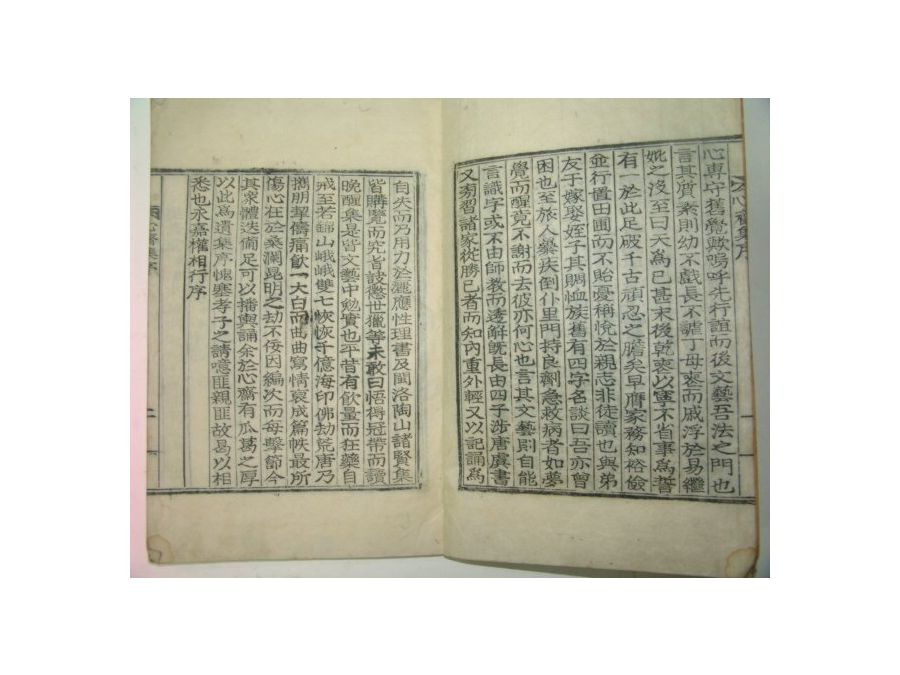 心齋集序
心專守舊覺歟嗚呼先行誼而後文藝吾法之門也
言其質素則幼不戲長不謔丁母喪而戚浮於易繼
妣之沒至曰大爲已甚末後乾喪以寠不省事爲誓
有一於此足破千古頑忍之膓矣早膺家務知裕儉
並行置田圃而不貽憂稱悅於親志非徒讀也與弟
友于嫁娶姪子其賙恤族舊有四字名談曰吾亦曾
困也至旅人暴疾倒仆里門持良劑急救病者如夢
覺而醒竟不謝而去彼亦何心也言其文藝則自能
言識字或不由師敎而透解旣長由四子涉唐虞書
又剪習諸家從勝己者而知內重外輕又以記誦爲
自失而乃用力於羅應性理書及閩洛陶山諸賢集
皆購覽而究旨誠懲世獵等未敢曰悟得冠帶而讀
晩醒集是皆文藝中勉實也平昔有飮量而狂藥自
戒至若錦山峨峨雙七恢恢千億海印佛劫荒唐乃
携朋挈儔痛飮一大白而曲曲寫情哀成篇帙最所
傷心在於桑瀾昆明之劫不佞因編次而每擊節今
其衆體迭備足可以播輿誦余於心齋有瓜葛之厚
以此爲遺集序愧塞孝子之請噫匪親匪故曷以相
悉也永嘉權相行序
心齋集序
二